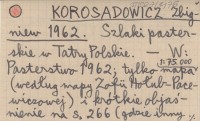 KOROSADOWICZ Zbig-
niew 1962. Szlaki paster-
skie w Tatry Polskie. — W:
1:75.000
Pasterstwo 1962, tylko mapa
(według mapy Zofii Hołub-Pace-
wiczowej) i krótkie objaś-
nienie na s. 266 (gdzie